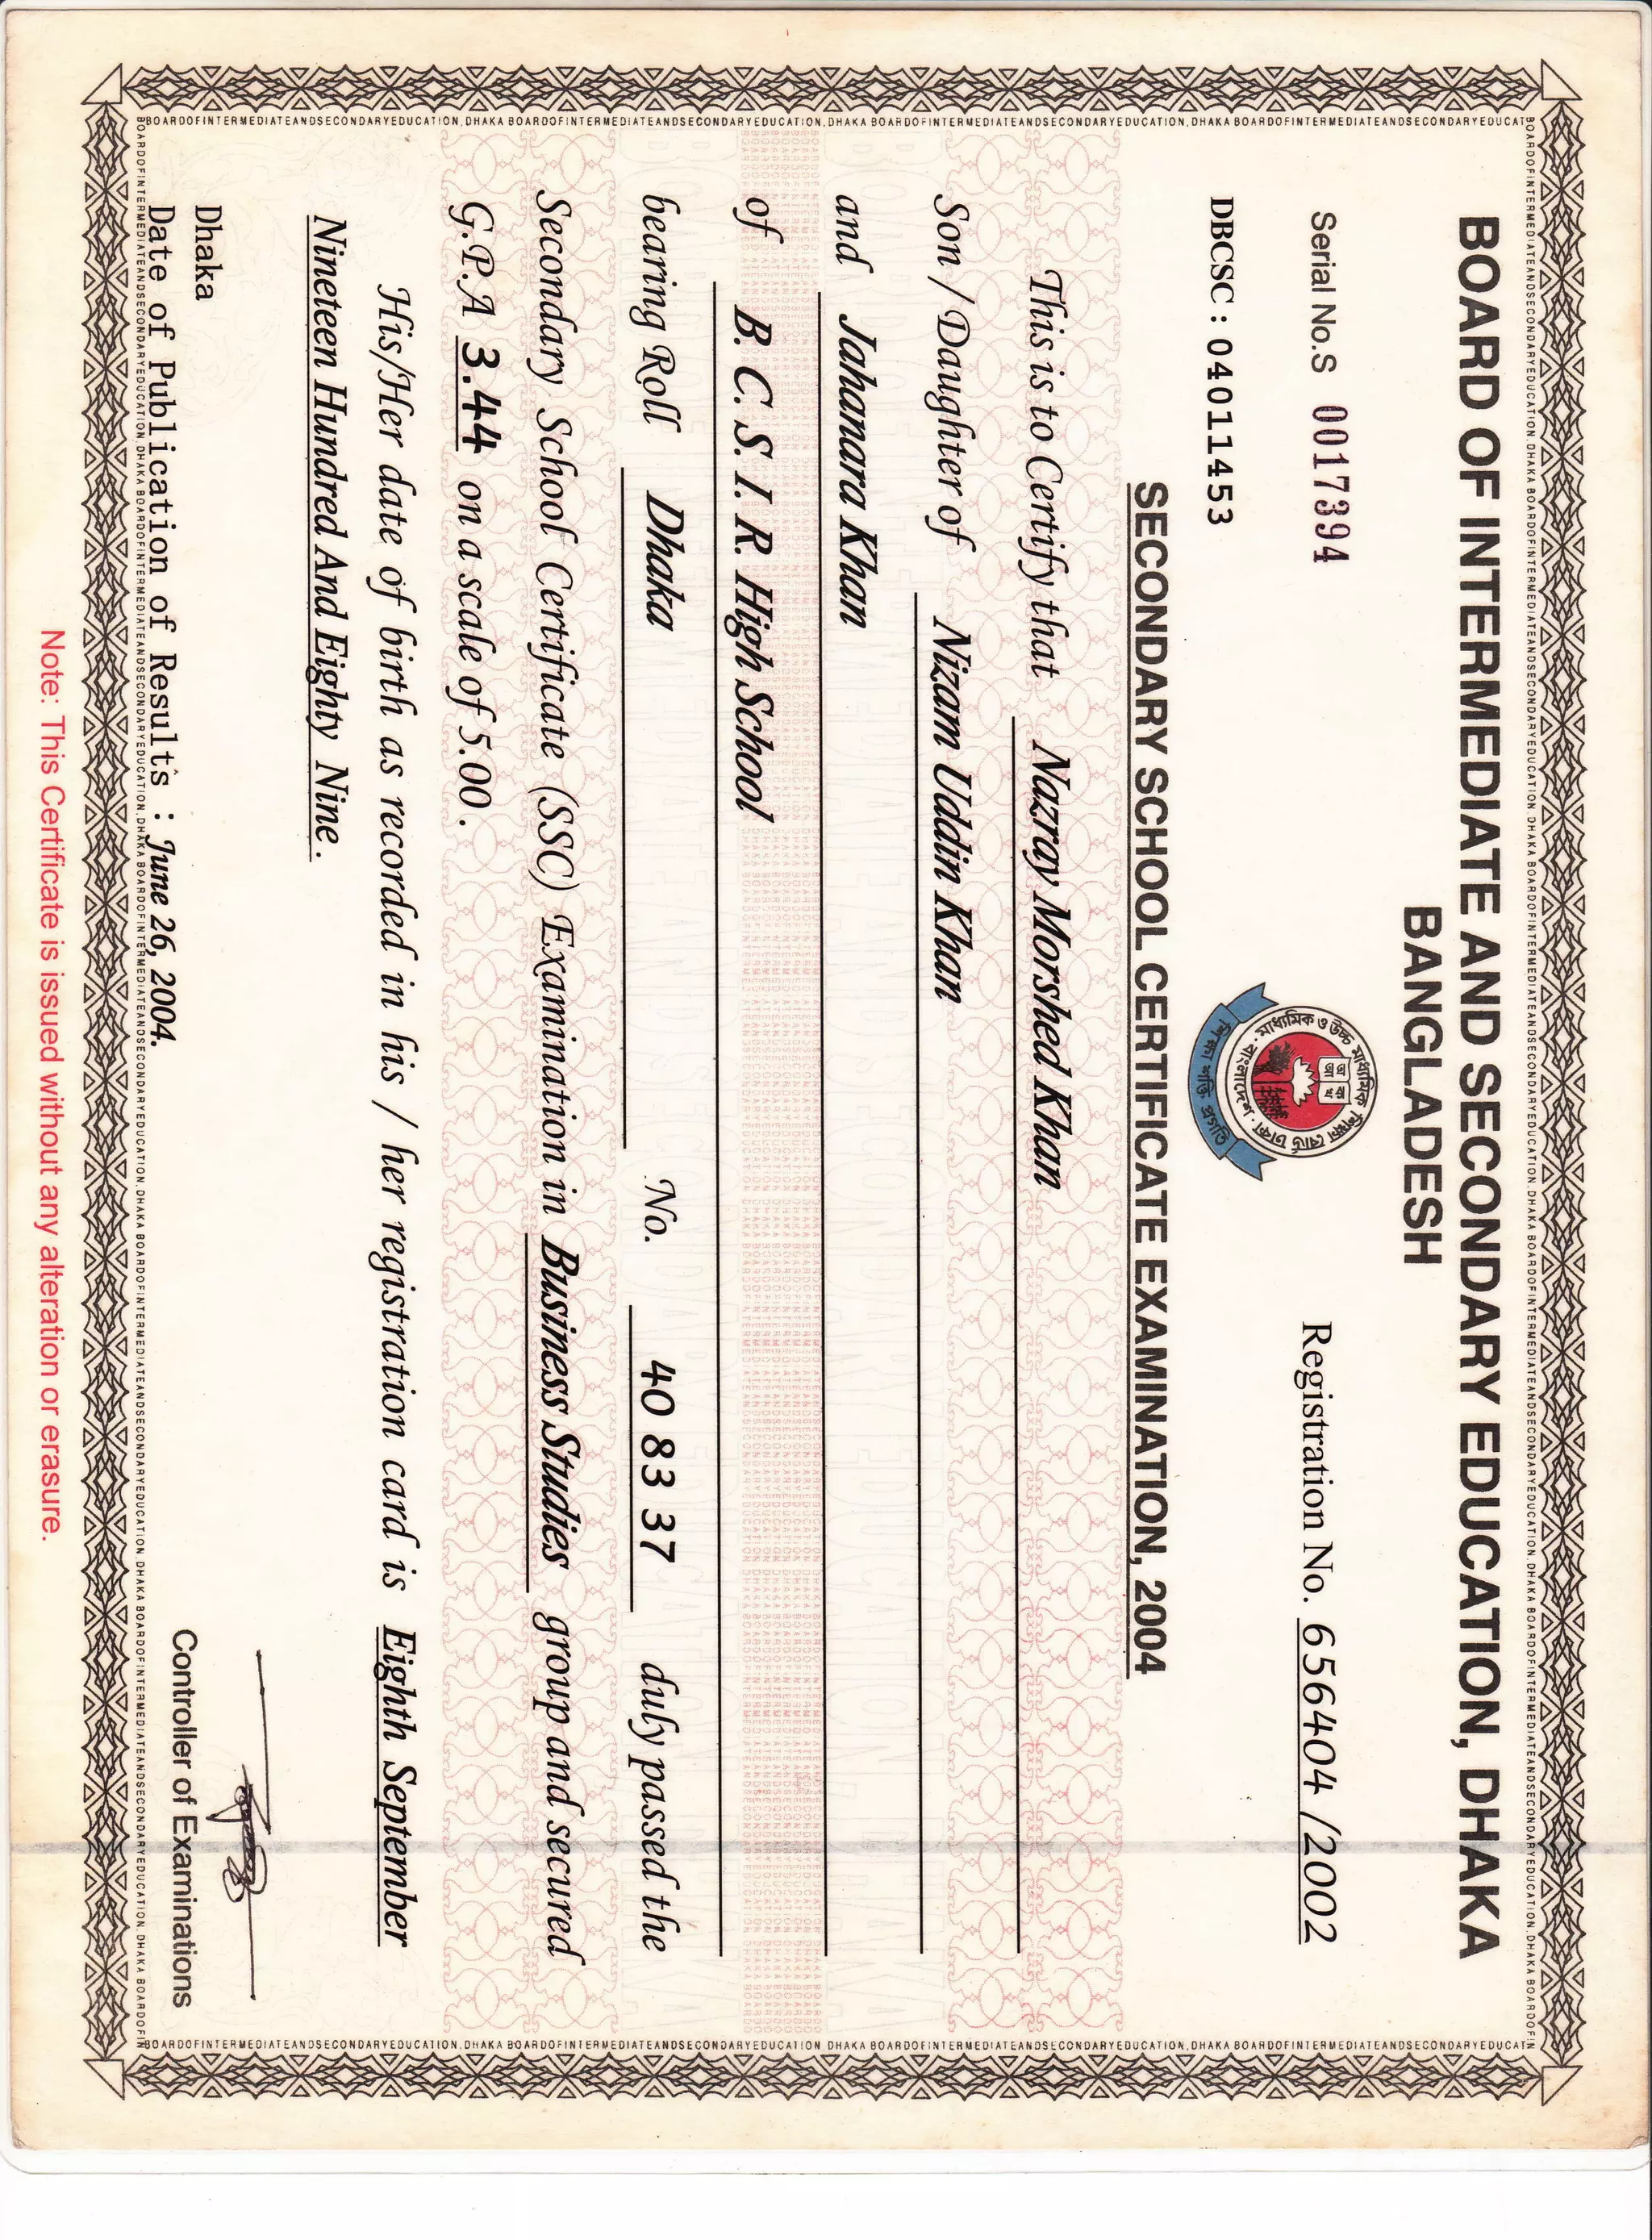 BOARD OF INTERMEDIATE AND SECONDARY EDUCATION, DHAKA
BANGLADESH
Serial No.S 0017394
Registration No. 656404 /2002
মাধ্যমিক ও উচ্চ মাধ্যমিক শিক্ষা বোর্ড ঢাকা
বাংলাদেশ
DBCSC : 04011453
SECONDARY SCHOOL CERTIFICATE EXAMINATION, 2004
This is to Certify that Nazray Morshed Khan
Son / Daughter of Nizam Uddin Khan
and Jahanara Khan
of B. C. S. I. R. High School
bearing Roll Dhaka No. 40 83 37 duly passed the
Secondary School Certificate (SSC) Examination in Business Studies group and secured
G.P.A 3.44 on a scale of 5.00.
His/Her date of birth as recorded in his / her registration card is Eighth September
Nineteen Hundred And Eighty Nine.
Dhaka
Date of Publication of Results : June 26, 2004.
Controller of Examinations
Note: This Certificate is issued without any alteration or erasure.